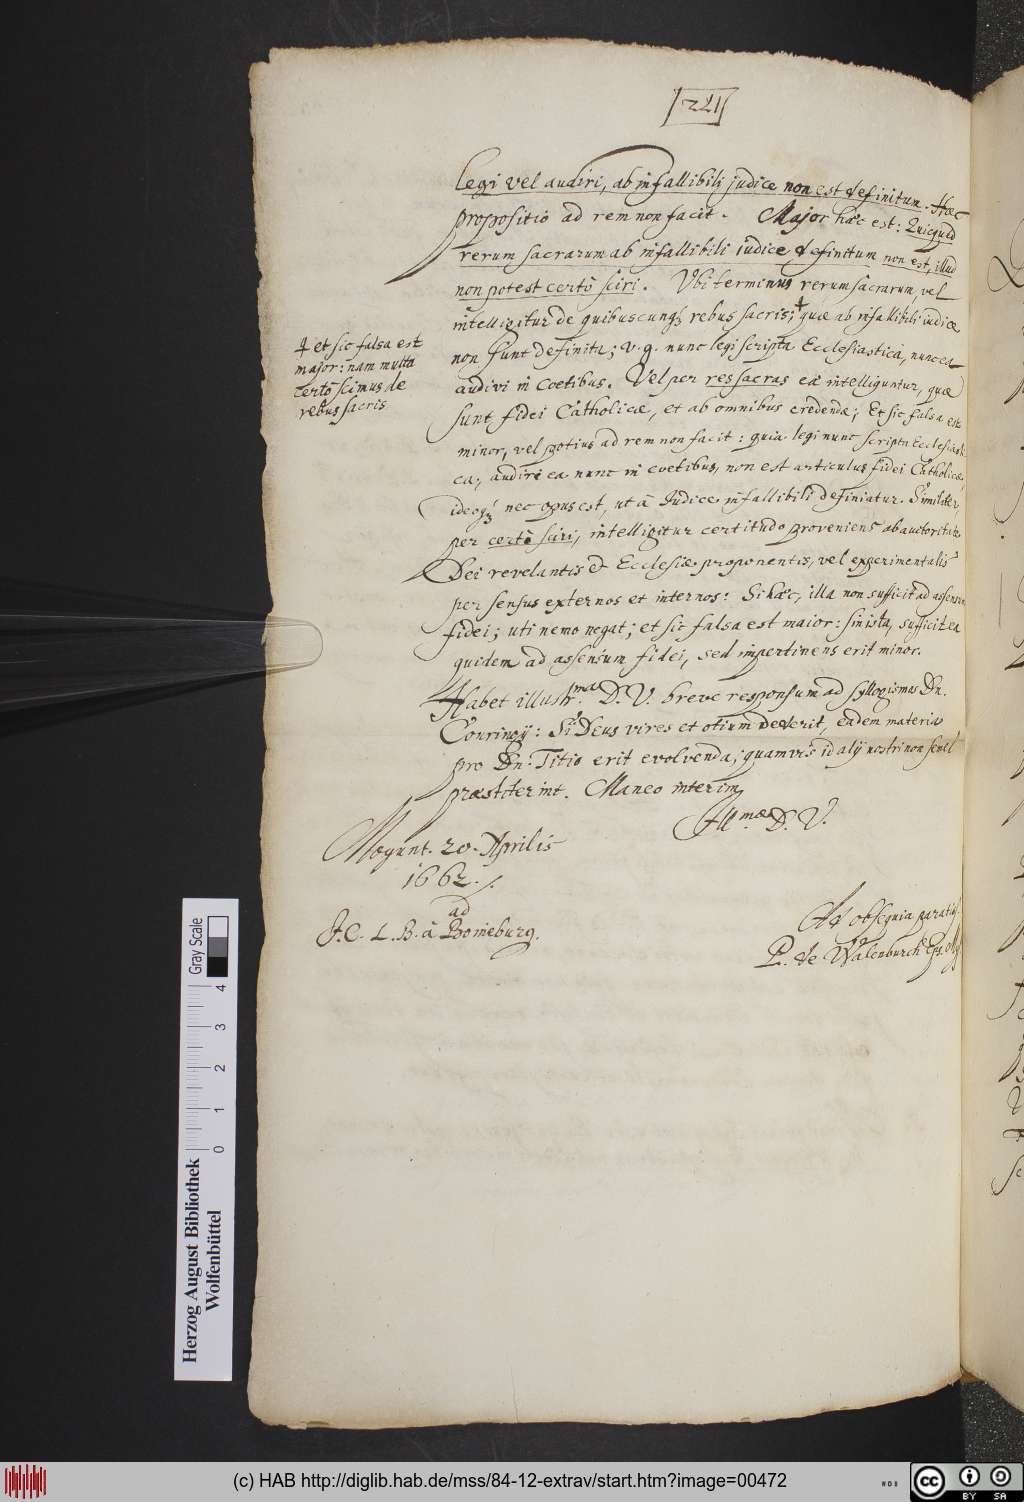 221
legi vel audiri, ab infallibili judice non est definitum. Hæc
propositio ad rem non facit. Major hæc est: Quicquid
rerum sacrarum ab infallibili iudice definitum non est, illud
non potest certò sciri. Ubi terminus rerum sacrarum, vel
intelligitur de quibuscunq; rebus sacris; ‡ quæ ab infallibili iudice
non sunt definita; v. g. nunc legi scripta Ecclesiastica, nunc ea
audivi in Coetibus. Vel per res sacras eæ intelliguntur, quæ
sunt fidei Catholicæ, et ab omnibus credendæ; Et sic falsa est
minor, vel potius ad rem non facit: quia legi nunc scripta Ecclesiasti-
ca, audiri ea nunc in coetibus, non est articulus fidei Catholicæ,
ideoq; nec opus est, ut à Iudice infallibili definiatur. Similiter,
per certò sciri, intelligitur certitudo proveniens ab auctoritate
Dei revelantis & Ecclesiæ proponentis, vel experimentalis
per sensus externos et internos: Si hæc, illa non sufficit ad assensum
fidei; uti nemo negat; et sic falsa est maior: sin ista, sufficit ea
quidem ad assensum fidei, sed impertinens erit minor.
‡ et sic falsa est
major: nam multa
certò scimus de
rebus sacris
Habet illustr.ma D. V. breve responsum ad syllogismos Dn.
Conringij: Si Deus vires et otium dederit, eadem materia
pro Dn. Titio erit evolvenda; quamvis id alij nostri non semel
præstiterint. Maneo interim
Ill.mæ D. V.
Mogunt. 20. Aprilis
1662.
ad
J. C. L. B. à Boineburg.
Ad obsequia paratus
P. de Walenburch Eps.
Herzog August Bibliothek
Wolfenbüttel
0 1 2 3 4
Gray Scale
(c) HAB http://diglib.hab.de/mss/84-12-extrav/start.htm?image=00472
cc BY SA